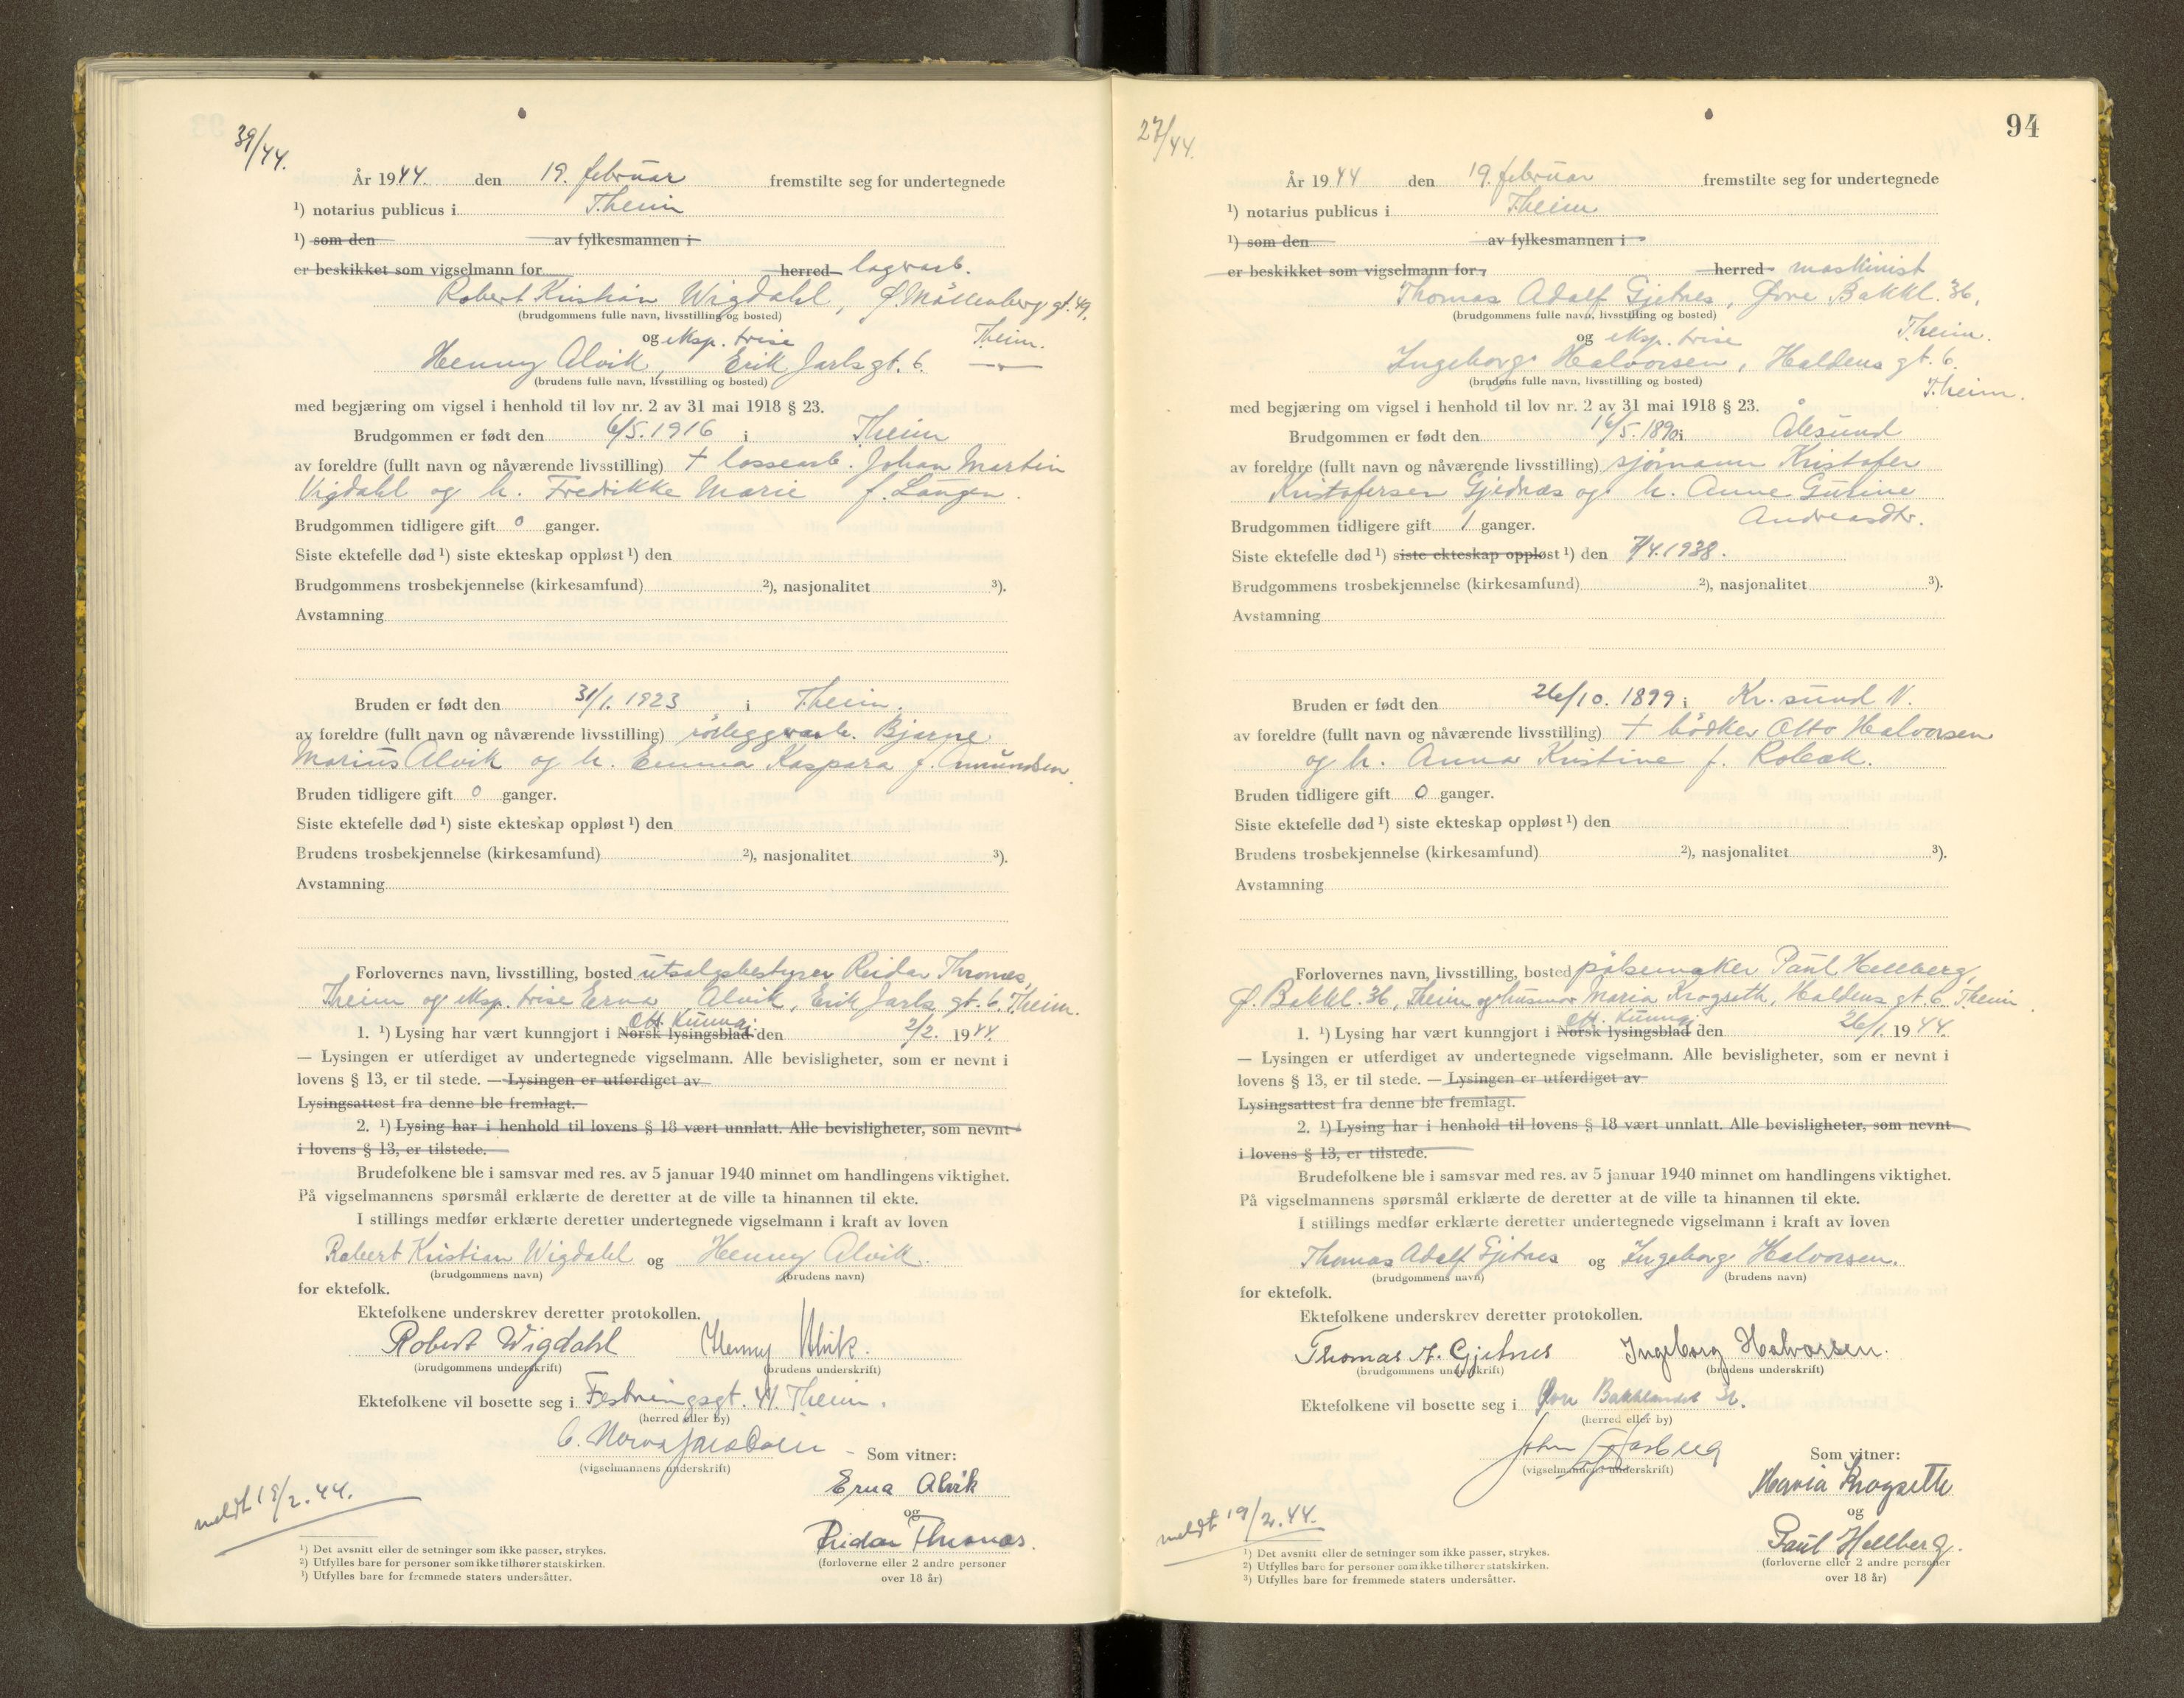 39/44.
År 1944. den 19. februar fremstilte seg for undertegnede
¹) notarius publicus i T.heim
¹) som den av fylkesmannen i
er beskikket som vigselmann for herred lagerarb.
Robert Kristian Wigdahl, Ø. Møllenberg gt. 49.
(brudgommens fulle navn, livsstilling og bosted)
og eksp. trise T.heim.
Henny Alvik, Erik Jarls gt. 6. —"—
(brudens fulle navn, livsstilling og bosted)
med begjæring om vigsel i henhold til lov nr. 2 av 31 mai 1918 § 23.
Brudgommen er født den 6/5. 1916 i T.heim
av foreldre (fullt navn og nåværende livsstilling) † lossearb. Johan Martin
Vigdahl og h. Fredrikke Marie f. Langen.
Brudgommen tidligere gift 0 ganger.
Siste ektefelle død ¹) siste ekteskap oppløst ¹) den
Brudgommens trosbekjennelse (kirkesamfund) ²), nasjonalitet ³).
Avstamning
Bruden er født den 31/1. 1923 i T.heim.
av foreldre (fullt navn og nåværende livsstilling) Bjarne
Marius Alvik og h. Emma Kaspara f. Amundsen
Bruden tidligere gift 0 ganger.
Siste ektefelle død ¹) siste ekteskap oppløst ¹) den
Brudens trosbekjennelse (kirkesamfund) ²), nasjonalitet ³).
Avstamning
Forlovernes navn, livsstilling, bosted utsalgsbestyrer Reidar Thomes,
T.heim og eksp. trise Erna Alvik, Erik Jarls gt. 6. T.heim.
Off. Kunngj.
1. ¹) Lysing har vært kunngjort i Norsk lysingsblad den 2/2. 1944.
— Lysingen er utferdiget av undertegnede vigselmann. Alle bevisligheter, som er nevnt i
lovens § 13, er til stede. — Lysingen er utferdiget av
Lysingsattest fra denne ble fremlagt.
2. ¹) Lysing har i henhold til lovens § 18 vært unnlatt. Alle bevisligheter, som nevnt
i lovens § 13, er tilstede.
Brudefolkene ble i samsvar med res. av 5 januar 1940 minnet om handlingens viktighet.
På vigselmannens spørsmål erklærte de deretter at de ville ta hinannen til ekte.
I stillings medfør erklærte deretter undertegnede vigselmann i kraft av loven
Robert Kristian Wigdahl og Henny Alvik.
(brudgommens navn) (brudens navn)
for ektefolk.
Ektefolkene underskrev deretter protokollen.
Robert Wigdahl Henny Alvik.
(brudgommens underskrift) (brudens underskrift)
Ektefolkene vil bosette seg i Festningsgt. 41. T.heim.
(herred eller by)
Som vitner:
(vigselmannens underskrift)
Erna Alvik
meldt 19/2. 44.
og
Reidar Thomes.
(forloverne eller 2 andre personer
over 18 år)
¹) Det avsnitt eller de setninger som ikke passer, strykes.
²) Utfylles bare for personer som ikke tilhører statskirken.
³) Utfylles bare for fremmede staters undersåtter.
94
27/44.
År 1944 den 19. februar fremstilte seg for undertegnede
¹) notarius publicus i T.heim
¹) som den av fylkesmannen i
er beskikket som vigselmann for herred maskinist
Thomas Adolf Gjetnes, Øvre Bakkl. 36,
(brudgommens fulle navn, livsstilling og bosted)
og eksp. trise T.heim.
Ingeborg Halvorsen, Haldens gt. 6.
(brudens fulle navn, livsstilling og bosted) T.heim.
med begjæring om vigsel i henhold til lov nr. 2 av 31 mai 1918 § 23.
Brudgommen er født den 16/5. 1890 i Ålesund
av foreldre (fullt navn og nåværende livsstilling) sjømann Kristofer
Kristofersen Gjednes og h. Anne Gurine
Andreasdtr.
Brudgommen tidligere gift 1 ganger.
Siste ektefelle død ¹) siste ekteskap oppløst ¹) den 7/4. 1938.
Brudgommens trosbekjennelse (kirkesamfund) ²), nasjonalitet ³).
Avstamning
Bruden er født den 26/10. 1899 i Kr.sund N.
av foreldre (fullt navn og nåværende livsstilling) † bödker Otto Halvorsen
og h. Anna Kristine f. Roleak.
Bruden tidligere gift 0 ganger.
Siste ektefelle død ¹) siste ekteskap oppløst ¹) den
Brudens trosbekjennelse (kirkesamfund) ²), nasjonalitet ³).
Avstamning
Forlovernes navn, livsstilling, bosted pølsemaker Paul Hellberg,
Ø. Bakkl. 36, T.heim og husmor Maria Krogseth, Haldens gt. 6. T.heim
Off. Kunngj.
1. ¹) Lysing har vært kunngjort i Norsk lysingsblad den 26/1. 1944.
— Lysingen er utferdiget av undertegnede vigselmann. Alle bevisligheter, som er nevnt i
lovens § 13, er til stede. — Lysingen er utferdiget av
Lysingsattest fra denne ble fremlagt.
2. ¹) Lysing har i henhold til lovens § 18 vært unnlatt. Alle bevisligheter, som nevnt
i lovens § 13, er tilstede.
Brudefolkene ble i samsvar med res. av 5 januar 1940 minnet om handlingens viktighet.
På vigselmannens spørsmål erklærte de deretter at de ville ta hinannen til ekte.
I stillings medfør erklærte deretter undertegnede vigselmann i kraft av loven
Thomas Adolf Gjetnes og Ingeborg Halvorsen.
(brudgommens navn) (brudens navn)
for ektefolk.
Ektefolkene underskrev deretter protokollen.
Thomas A. Gjetnes Ingeborg Halvorsen.
(brudgommens underskrift) (brudens underskrift)
Ektefolkene vil bosette seg i Øvre Bakklandet 36.
(herred eller by)
John Som vitner:
(vigselmannens underskrift)
Maria Krogseth
meldt 19/2. 44.
og
Paul Hellberg.
(forloverne eller 2 andre personer
over 18 år)
¹) Det avsnitt eller de setninger som ikke passer, strykes.
²) Utfylles bare for personer som ikke tilhører statskirken.
³) Utfylles bare for fremmede staters undersåtter.